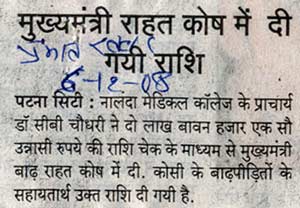 मुख्यमंत्री राहत कोष में दी
प्रभात खबर
गयी राशि
6-12-08
पटना सिटी : नालंदा मेडिकल कॉलेज के प्राचार्य
डॉ सीबी चौधरी ने दो लाख बावन हजार एक सौ
उन्नासी रुपये की राशि चेक के माध्यम से मुख्यमंत्री
बाढ़ राहत कोष में दी. कोसी के बाढ़पीड़ितों के
सहायतार्थ उक्त राशि दी गयी है.